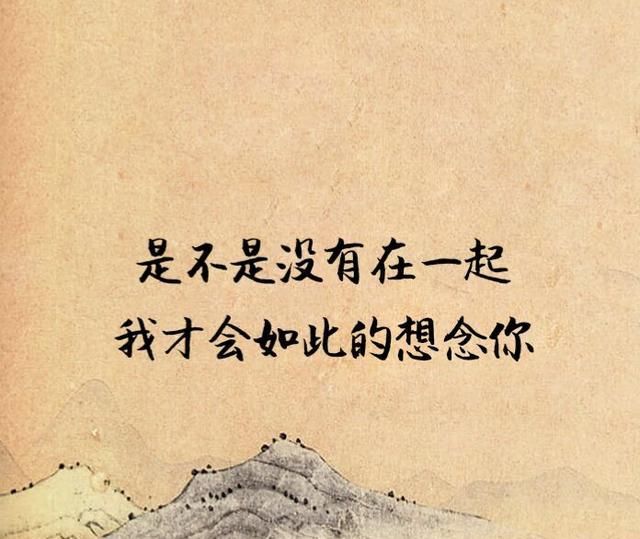 是不是没有在一起
我才会如此的想念你